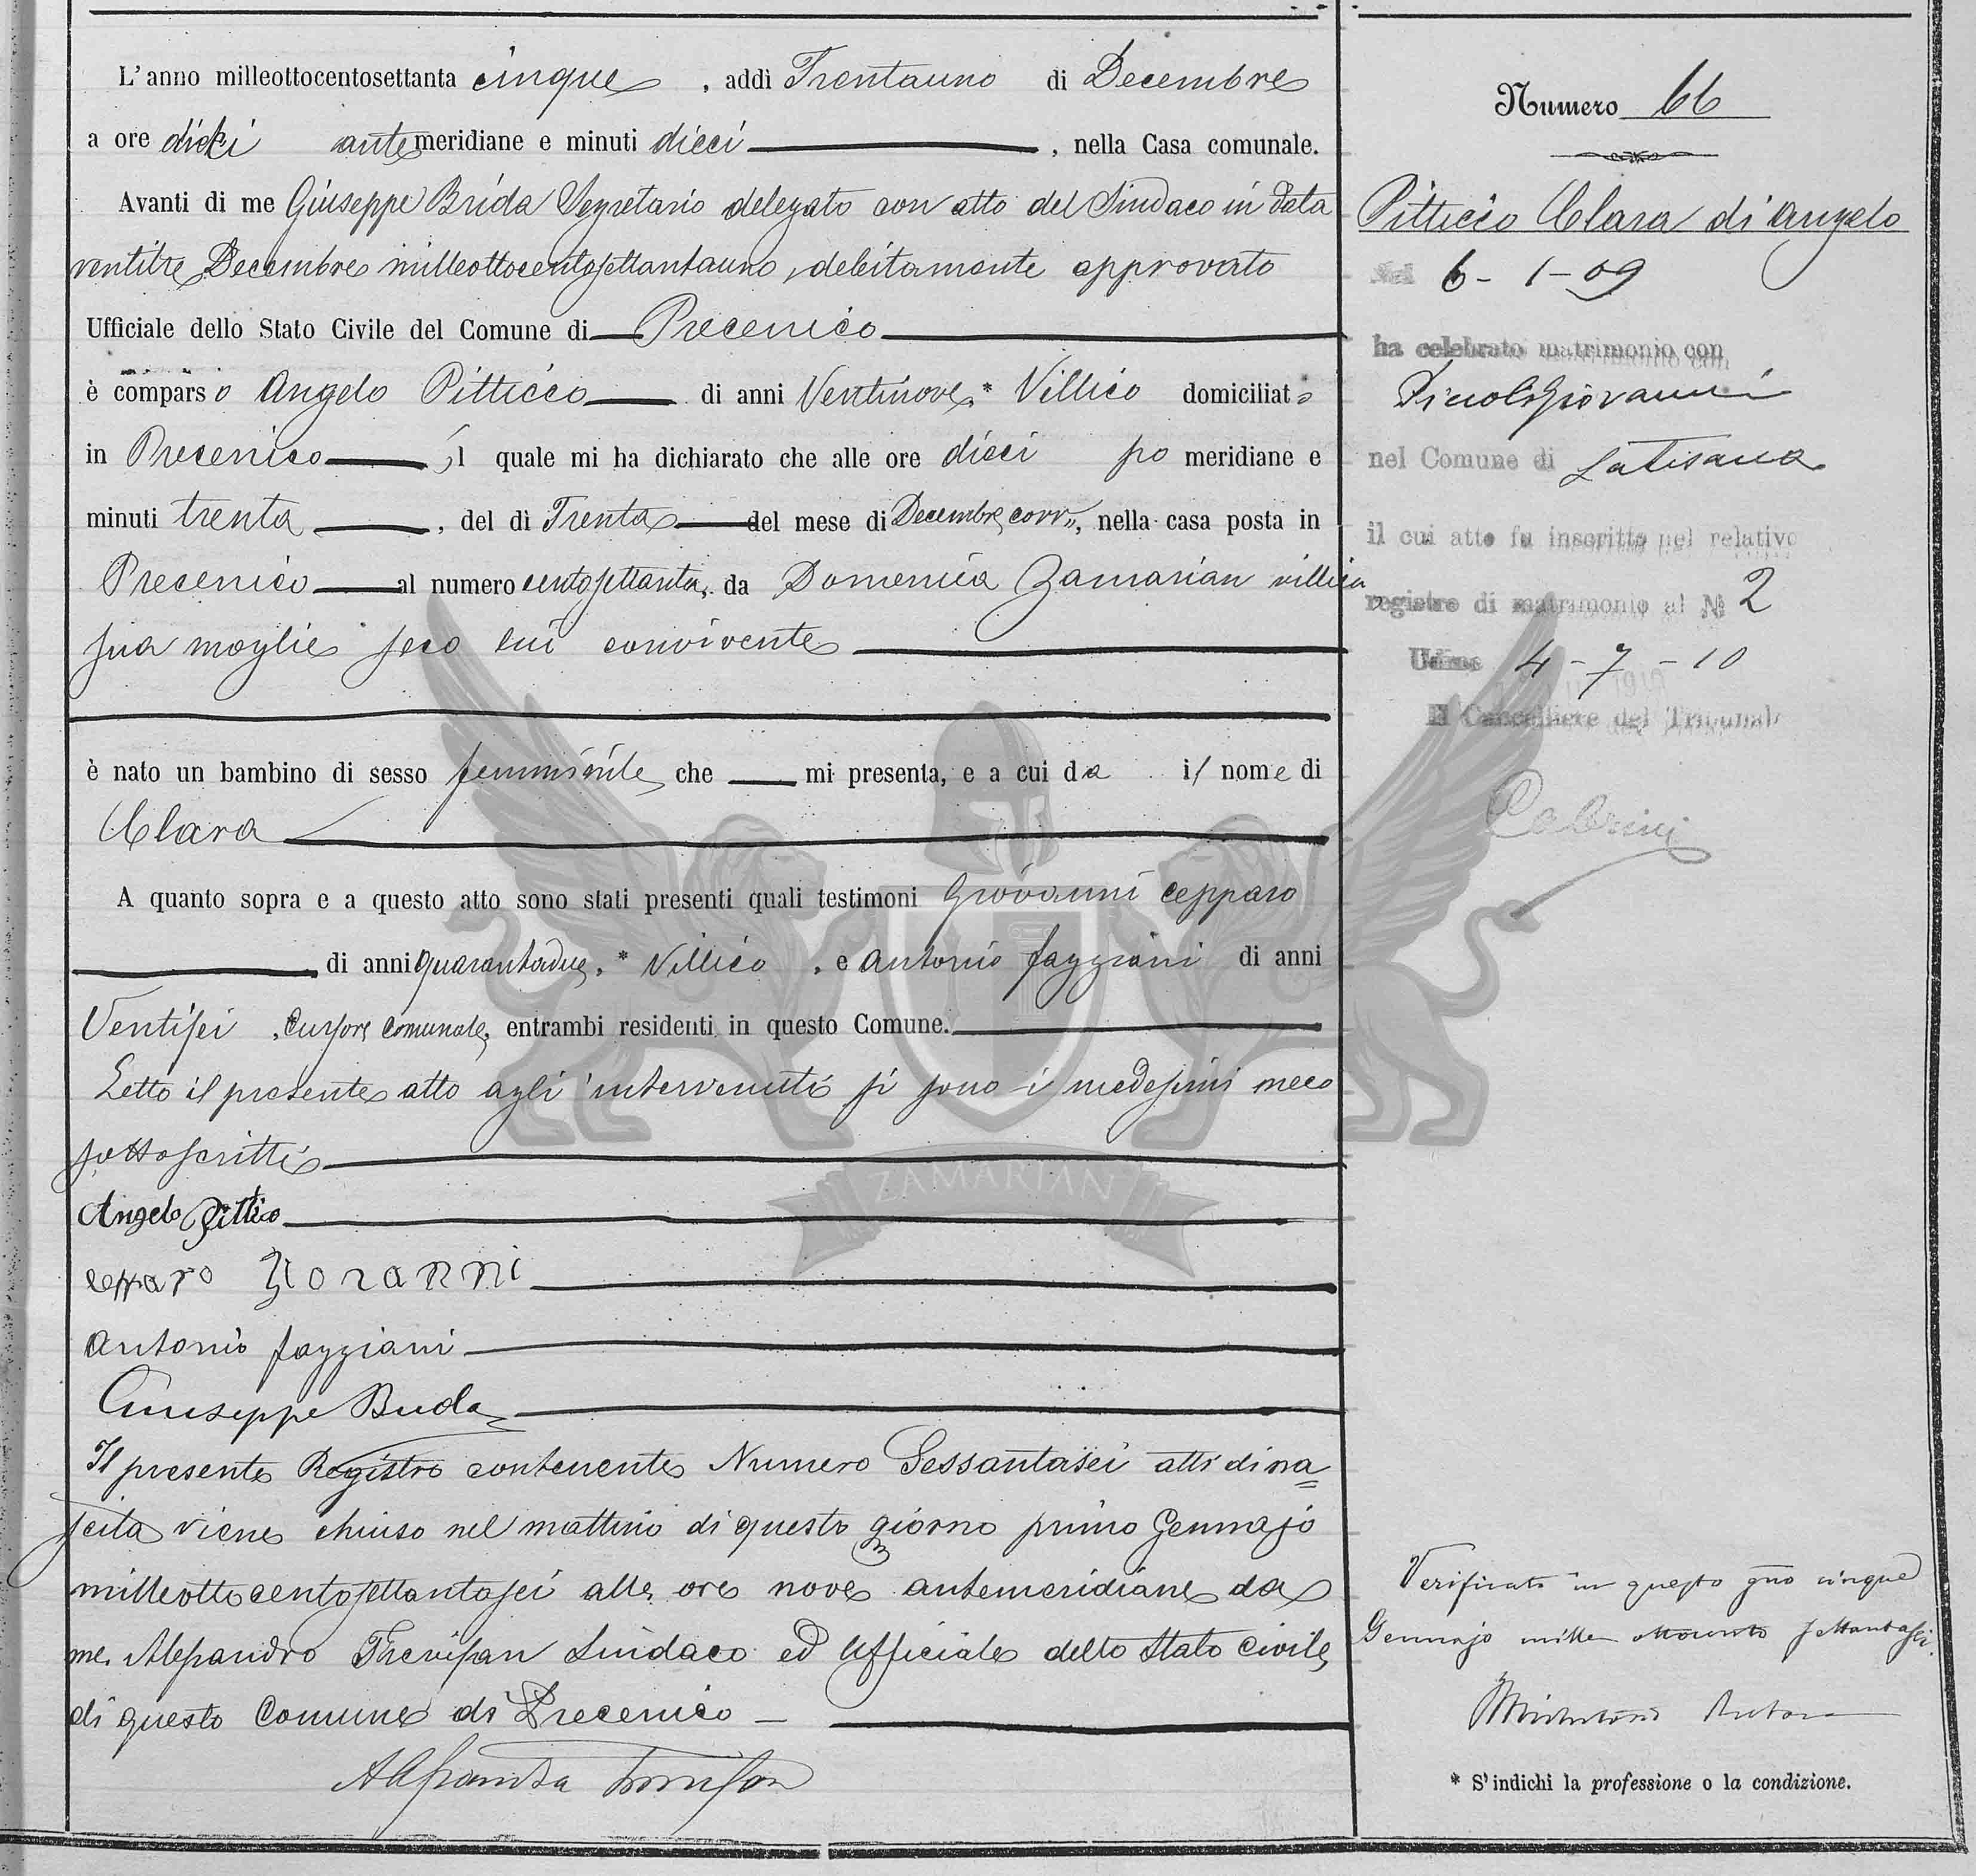 L'anno milleottocentosettanta cinque, addì Trentauno di Decembre
a ore dieci antemeridiane e minuti dieci, nella Casa comunale.
Avanti di me Giuseppe Brida Segretario delegato con atto del Sindaco in data
ventitre Decembre milleottocentosettantauno, debitamente approvato
Ufficiale dello Stato Civile del Comune di Precenico
è comparso Angelo Pitticco di anni Ventinove, * Villico domiciliato
in Precenico, il quale mi ha dichiarato che alle ore dieci po meridiane e
minuti trenta, del dì Trenta del mese di Decembre corr., nella casa posta in
Precenico al numero centosettanta, da Domenica Zamarian villica
sua moglie seco lui convivente
è nato un bambino di sesso femminile che mi presenta, e a cui da il nome di
Clara
A quanto sopra e a questo atto sono stati presenti quali testimoni Giovanni Cepparo
di anni quarantadue, * Villico, e Antonio Faggiani di anni
Ventisei, Cursore comunale, entrambi residenti in questo Comune.
Letto il presente atto agli intervenuti si sono i medesimi meco
sottoscritti
Angelo Pittico
Cepparo Giovanni
Antonio Faggiani
Giuseppe Brida
Il presente Registro contenente Numero Sessantasei atti di na=
scita viene chiuso nel mattino di questo giorno primo Gennajo
milleottocentosettantasei alle ore nove antemeridiane da
me Alessandro Trevisan Sindaco ed Ufficiale dello Stato Civile
di questo Comune di Precenico -
Alessandro Trevisan
ZAMARIAN
Numero 66
Pitticco Clara di Angelo
Nel 6-1-09
ha celebrato matrimonio con
Giovanni
nel Comune di Latisana
il cui atto fu inscritto nel relativo
registro di matrimonio al N 2
Udine 4-7-10
Il Cancelliere del Tribunale
Cabrini
Verificato in questo gno cinque
Gennajo mille ottocento settantasei
* S'indichi la professione o la condizione.